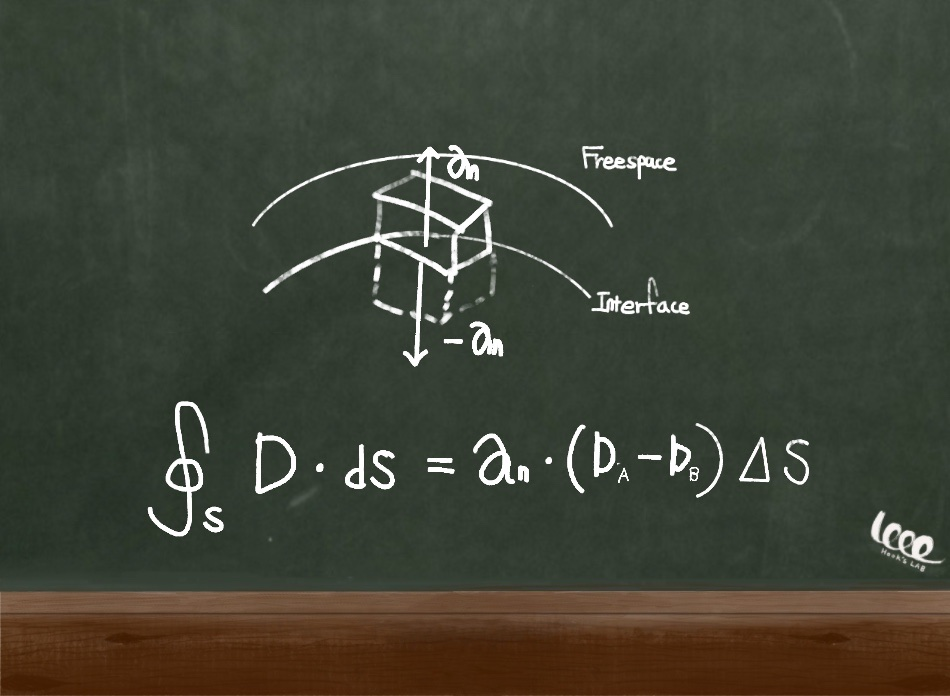 aₙ
Freespace
Interface
-aₙ
∮ₛ D · ds = aₙ · (D_A - D_B) ΔS
leee
Hook's LAB